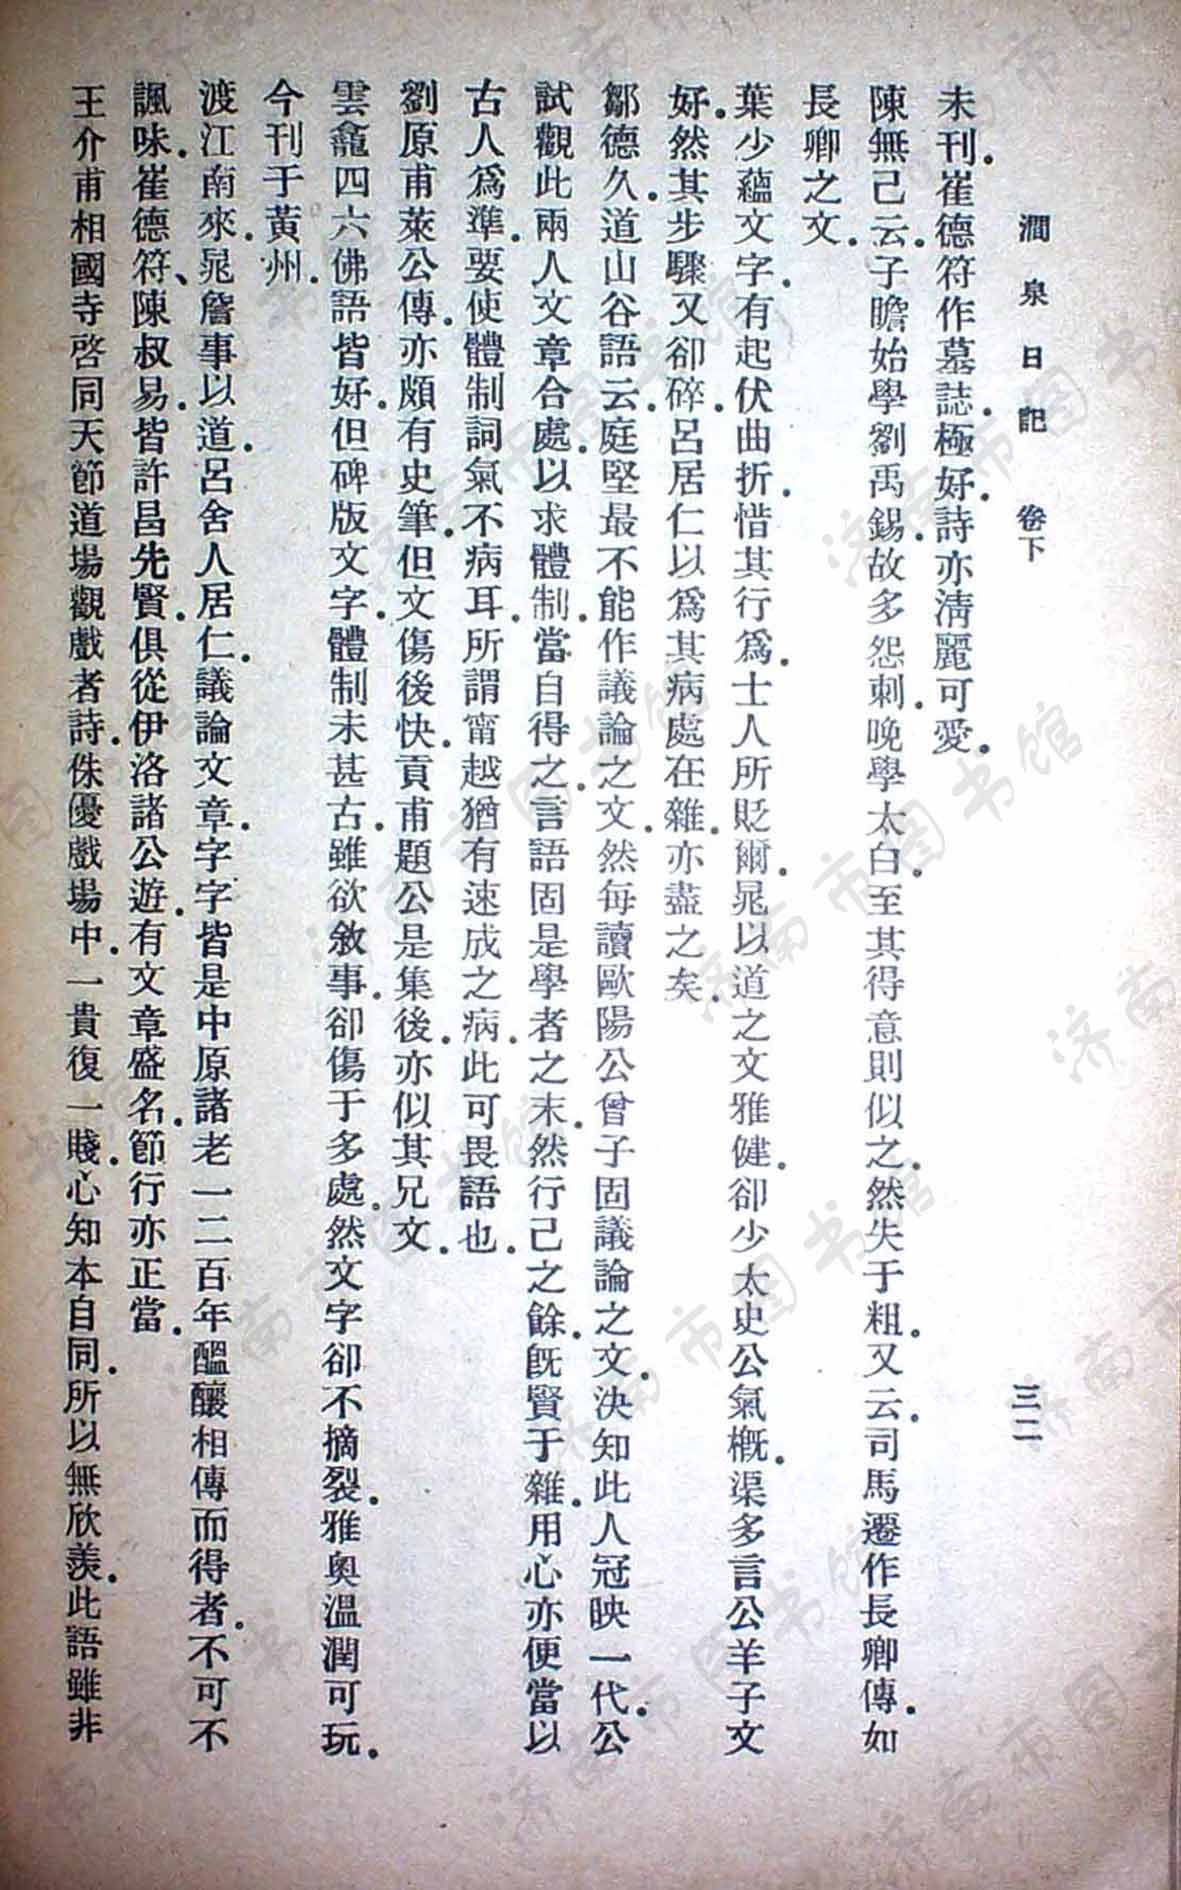 澗泉日記 卷下 三二
未刊.崔德符作墓誌.極好.詩亦淸麗可愛.
陳無己云.子瞻始學劉禹錫.故多怨刺.晚學太白.至其得意則似之.然失于粗.又云.司馬遷作長卿傳.如
長卿之文.
葉少蘊文字.有起伏曲折.惜其行爲.士人所貶爾.晁以道之文雅健.卻少太史公氣槪.渠多言公羊子文
好.然其步驟又卻碎.呂居仁以爲其病處在雜.亦盡之矣.
鄒德久.道山谷語云.庭堅最不能作議論之文.然每讀歐陽公曾子固議論之文.決知此人冠映一代.公
試觀此兩人文章合處.以求體制.當自得之.言語固是學者之末.然行己之餘.旣賢于雜.用心亦便當以
古人爲準.要使體制詞氣不病耳.所謂甯越猶有速成之病.此可畏語也.
劉原甫萊公傳.亦頗有史筆.但文傷後快.貢甫題公是集後.亦似其兄文.
雲龕四六佛語皆好.但碑版文字.體制未甚古.雖欲敘事.卻傷于多處.然文字卻不摘裂.雅奧溫潤可玩.
今刊于黃州.
渡江南來.晁詹事以道.呂舍人居仁.議論文章.字字皆是中原諸老一二百年醞釀相傳而得者.不可不
諷味.崔德符、陳叔易.皆許昌先賢.俱從伊洛諸公遊.有文章盛名.節行亦正當.
王介甫相國寺啓同天節道場觀戲者詩.侏優戲場中.一貴復一賤.心知本自同.所以無欣羨.此語雖非
济南市图书馆